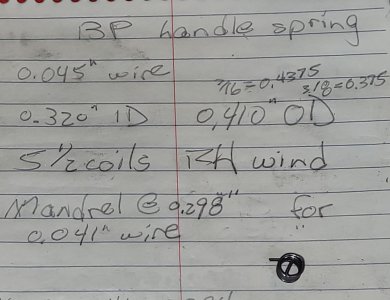 BP handle spring
0.045" wire
7/16=0.4375
3/8=0.375
0.320" ID 0.410" OD
5 1/2 coils RH wind
Mandrel @ 0.298" for
0.041" wire